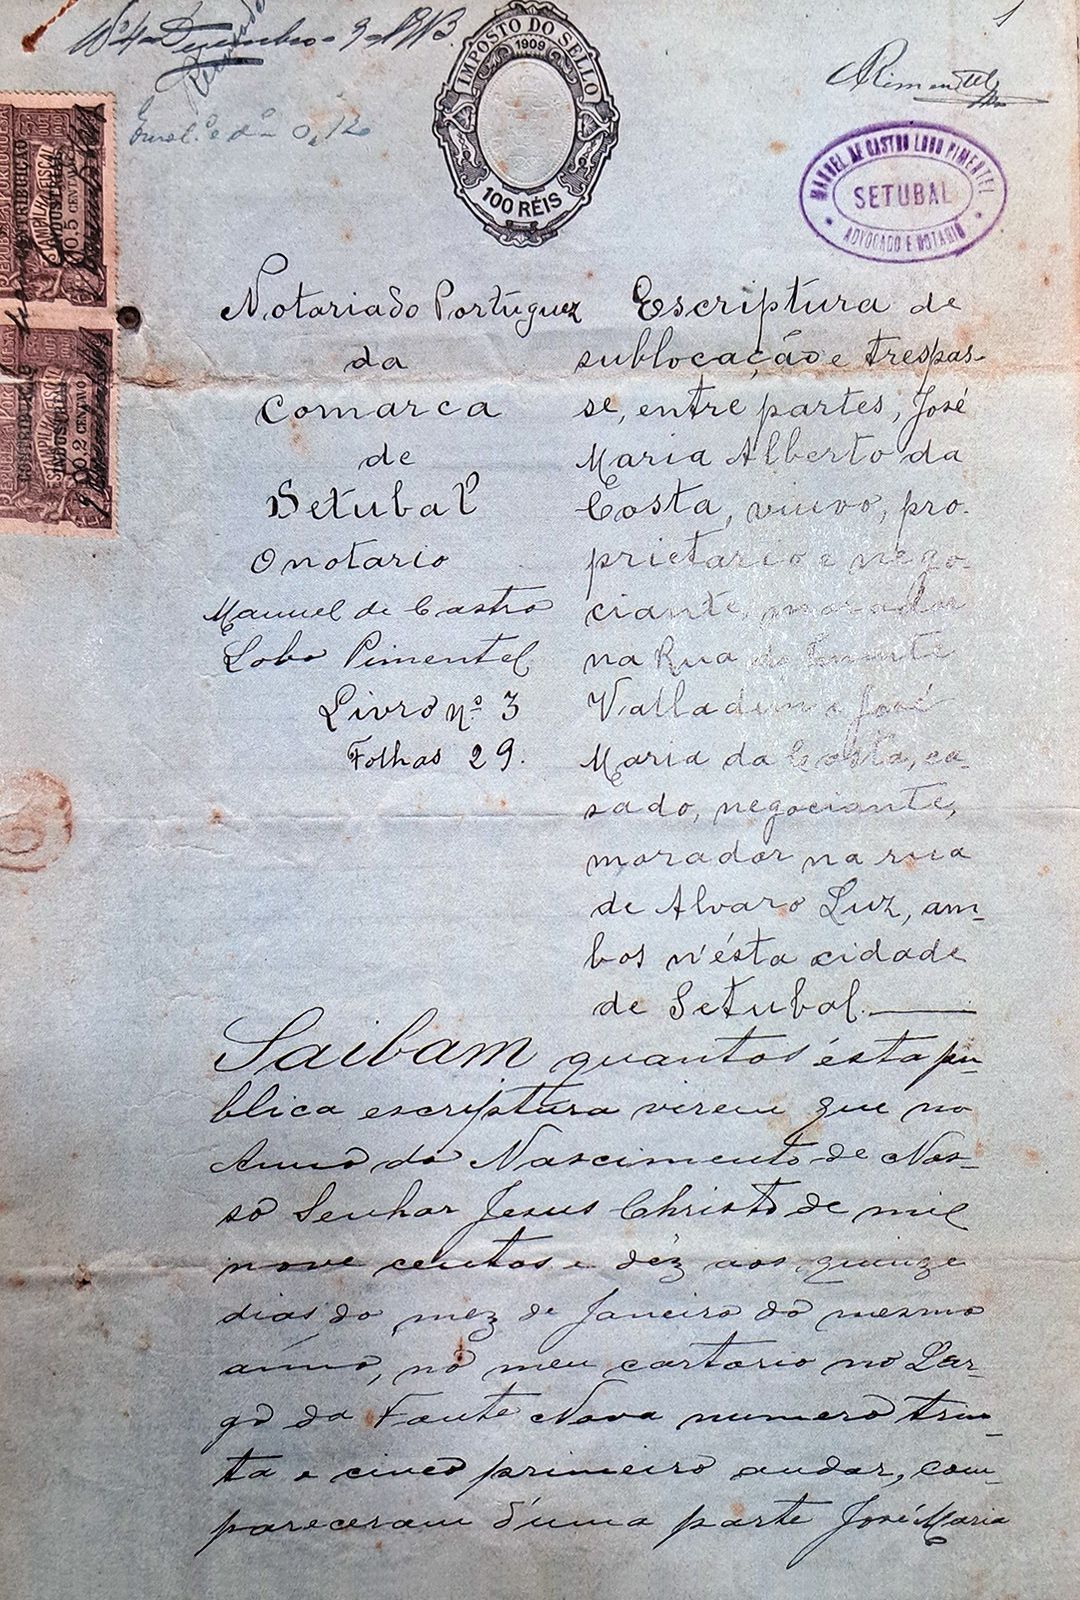 Nº 4 Dezembro - 9 - 1913
1
IMPOSTO DO SELLO
1909
100 RÉIS
Pimentel
MANUEL DE CASTRO LOBO PIMENTEL
SETUBAL
ADVOGADO E NOTARIO
CONTRIBUIÇÃO
INDUSTRIAL
ESTAMPILHA FISCAL
5 CENTAVOS
CONTRIBUIÇÃO
INDUSTRIAL
ESTAMPILHA FISCAL
2 CENTAVOS
Notariado Portuguez
da
Comarca
de
Setubal
O notario
Manuel de Castro
Lobo Pimentel
Livro nº 3
Folhas 29.
Escriptura de
sublocação e trespas-
se, entre partes, José
Maria Alberto da
Costa, viuvo, pro-
prietario e nego-
ciante, morador
na Rua do Tenente
Valladim e José
Maria da Costa, ca-
sado, negociante,
morador na rua
de Alvaro Luz, am-
bos n'ésta cidade
de Setubal.
Saibam quantos ésta pu-
blica escriptura virem que no
Anno do Nascimento de Nos-
so Senhor Jesus Christo de mil
nove centos e déz aos quinze
dias do mez de Janeiro do mesmo
anno, no meu cartorio no Lar-
go da Fonte Nova numero trin-
ta e cinco primeiro andar, com-
pareceram d'uma parte José Maria